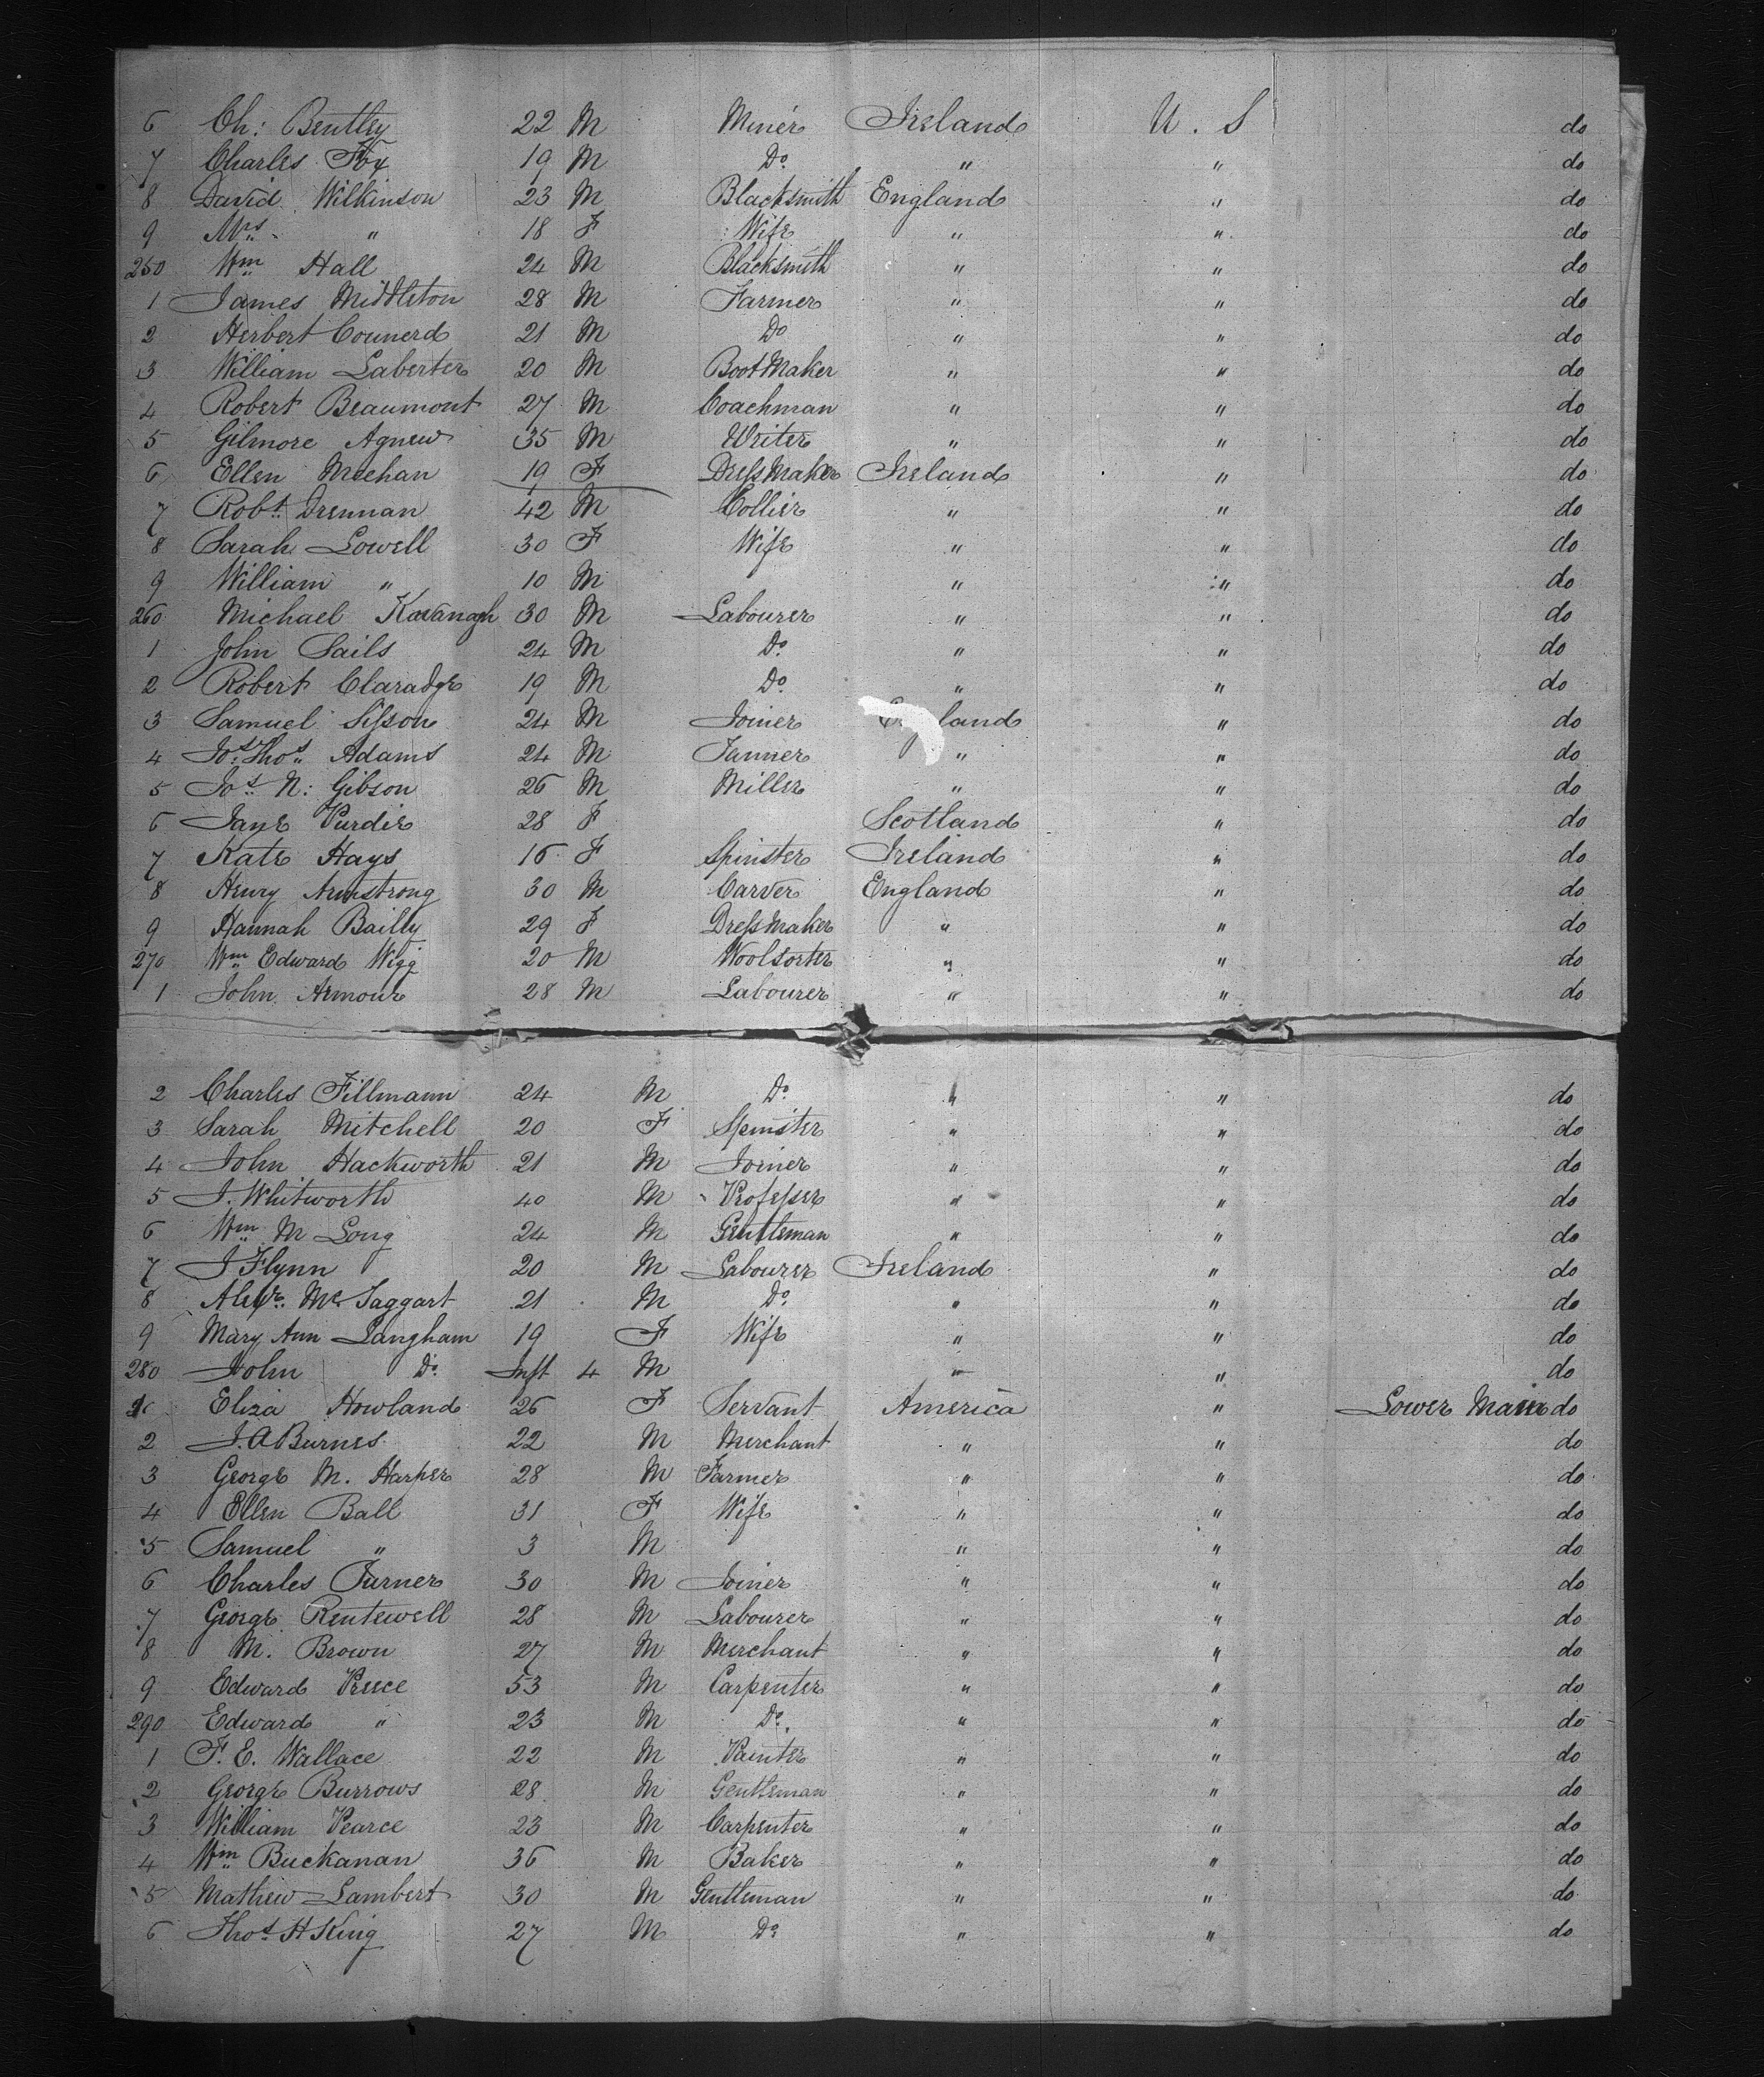 6 Ch: Bentley 22 M Miner Ireland U. S do
7 Charles Fox 19 M Do " " do
8 David Wilkinson 23 M Blacksmith England " do
9 Mrs " 18 F Wife " " do
250 Wm Hall 24 M Blacksmith " " do
1 James Middleton 28 M Farmer " " do
2 Herbert Counerd 21 M Do " " do
3 William Laberter 20 M Boot Maker " " do
4 Robert Beaumont 27 M Coachman " " do
5 Gilmore Agnew 35 M Writer " " do
6 Ellen Meehan 19 F Dress Maker Ireland " do
7 Robt Drennan 42 M Collier " " do
8 Sarah Lowell 30 F Wife " " do
9 William " 10 M " " do
260 Michael Kavanagh 30 M Labourer " " do
1 John Sails 24 M Do " " do
2 Robert Claradge 19 M Do " " do
3 Samuel Sisson 24 M Joiner England " do
4 Jos Thos Adams 24 M Tanner " " do
5 Jos N: Gibson 26 M Miller " " do
6 Jane Purdie 28 F Scotland " do
7 Kate Hays 16 F Spinster Ireland " do
8 Henry Armstrong 30 M Carver England " do
9 Hannah Bailly 29 F Dress Maker " " do
270 Wm Edward Wigg 20 M Woolsorter " " do
1 John Armour 28 M Labourer " " do
2 Charles Fillmann 24 M Do " " do
3 Sarah Mitchell 20 F Spinster " " do
4 John Hackworth 21 M Joiner " " do
5 J. Whitworth 40 M Professer " " do
6 Wm M Long 24 M Gentleman " " do
7 J Flynn 20 M Labourer Ireland " do
8 Alexr. Mc Taggart 21 M Do " " do
9 Mary Ann Langham 19 F Wife " " do
280 John Do Inft 4 M " " do
1 Eliza Howland 26 F Servant America " Lower Main do
2 J. A Burnes 22 M Merchant " " do
3 George M. Harper 28 M Farmer " " do
4 Ellen Ball 31 F Wife " " do
5 Samuel " 3 M " " do
6 Charles Turner 30 M Joiner " " do
7 George Rentewell 28 M Labourer " " do
8 M. Brown 27 M Merchant " " do
9 Edward Preece 53 M Carpenter " " do
290 Edward " 23 M Do. " " do
1 F. E. Wallace 22 M Painter " " do
2 George Burrows 28 M Gentleman " " do
3 William Pearce 23 M Carpenter " " do
4 Wm Buckanan 36 M Baker " " do
5 Mathew Lambert 30 M Gentleman " " do
6 Thos H King 27 M Do " " do